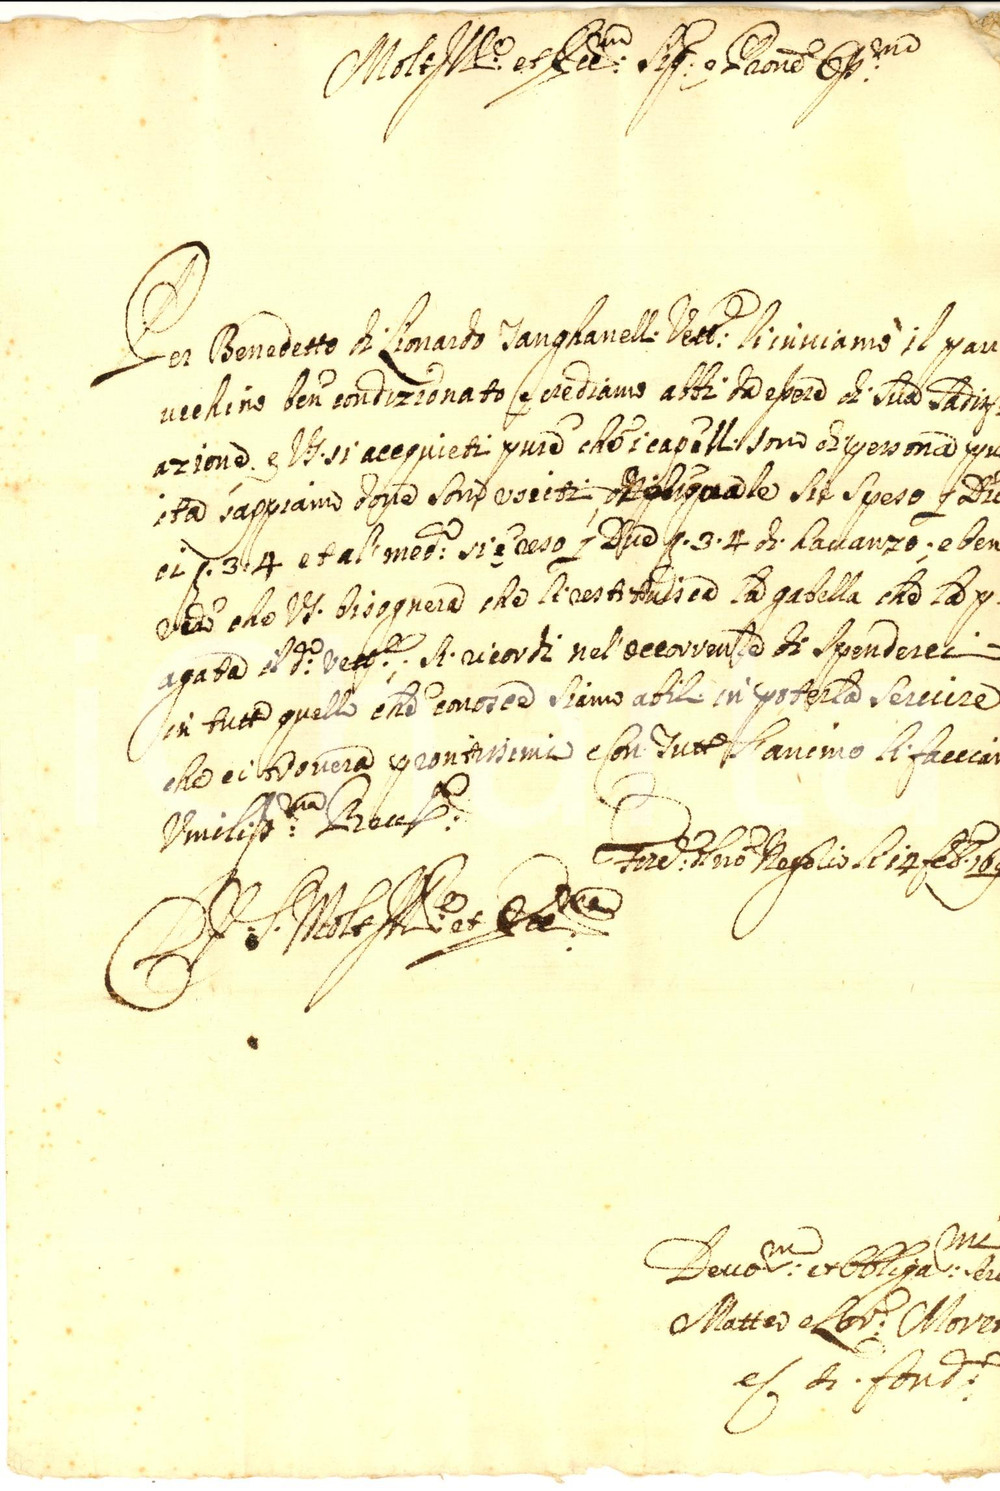 Molt Ill.e et Ecc.mo Sig.r e Prone Oss.mo
Per Benedetto di Lionardo Tanghanelli Vett.e li inviamo il parr
ucchino ben condizionato e crediamo abbi da essere di sua sadisf
azione. e VS. si acquieti pure che i capelli sono di persona pu
ita sappiamo dove sono usciti, quale si è speso p Die
ci p. 3.4 et al med.o si è reso p Due p. 3.4 di havanzo; e ben
vero che VS. bisognera che li restituisca la gabella che la p
agata il d.o vett.e; si ricordi nel occorrente di spenderci
in tutto quello che conosca siamo abili in poterla servire
che ci troverà prontissimi e con tutto l'animo li facciam
Umiliss.ma Rever.a
li 14 feb.o 169
D. V. S. Molt Ill.e et Ecc.ma
Devo.mi et obbliga.mi ser
Matteo e Lor.o Moren
e C. di fond.a